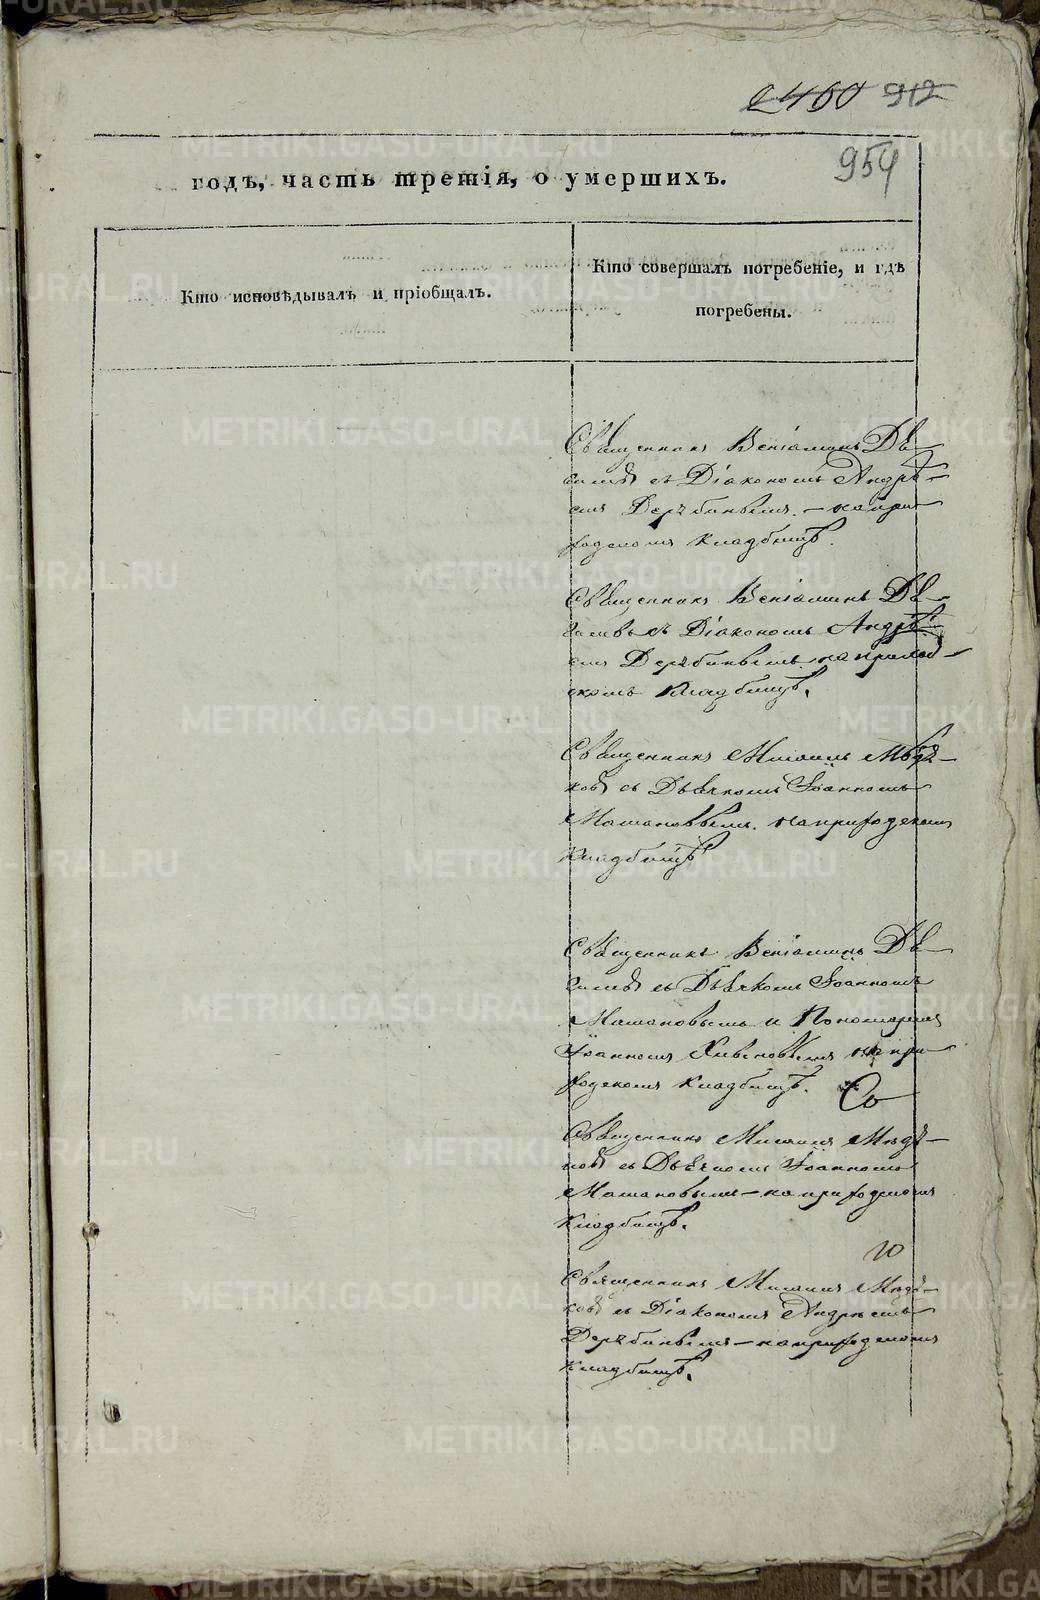 2460 912
954
годъ, часть третія, о умершихъ.
Кто исповѣдывалъ и пріобщалъ.
Кто совершалъ погребеніе, и гдѣ
погребены.
Священникъ Веніаминъ
съ Діакономъ Андрѣ-
емъ Дерябинымъ. - на при-
ходскомъ кладбищѣ.
Священникъ Веніаминъ
съ Діакономъ Андрѣ-
емъ Дерябинымъ на приход-
скомъ кладбищѣ.
Священникъ Михаилъ
съ Дьячкомъ Іоанномъ
на приходскомъ
кладбищѣ
Священникъ Веніаминъ
съ Дьячкомъ Іоанномъ
и Пономаремъ
Іоанномъ на при-
ходскомъ кладбищѣ.
Священникъ Михаилъ
съ Дьячкомъ Іоанномъ
- на приходскомъ
кладбищѣ.
Священникъ Михаилъ
съ Діакономъ Андреемъ
Дерябинымъ - на приходскомъ
кладбищѣ.
METRIKI.GASO-URAL.RU